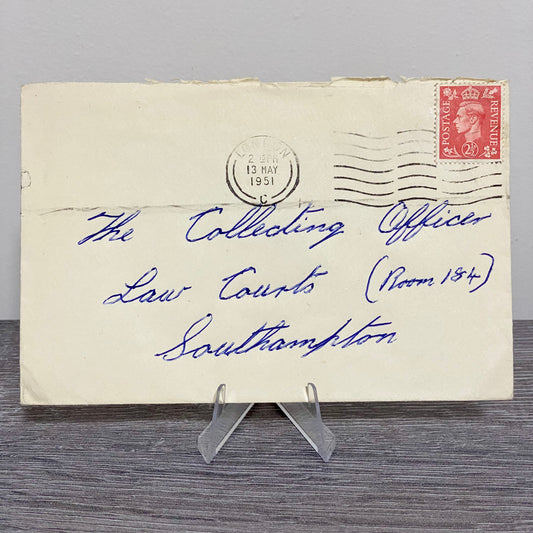 LONDON
2 15PM
13 MAY
1951
C
POSTAGE
REVENUE
2½D
The Collecting Officer
Law Courts (Room 184)
Southampton